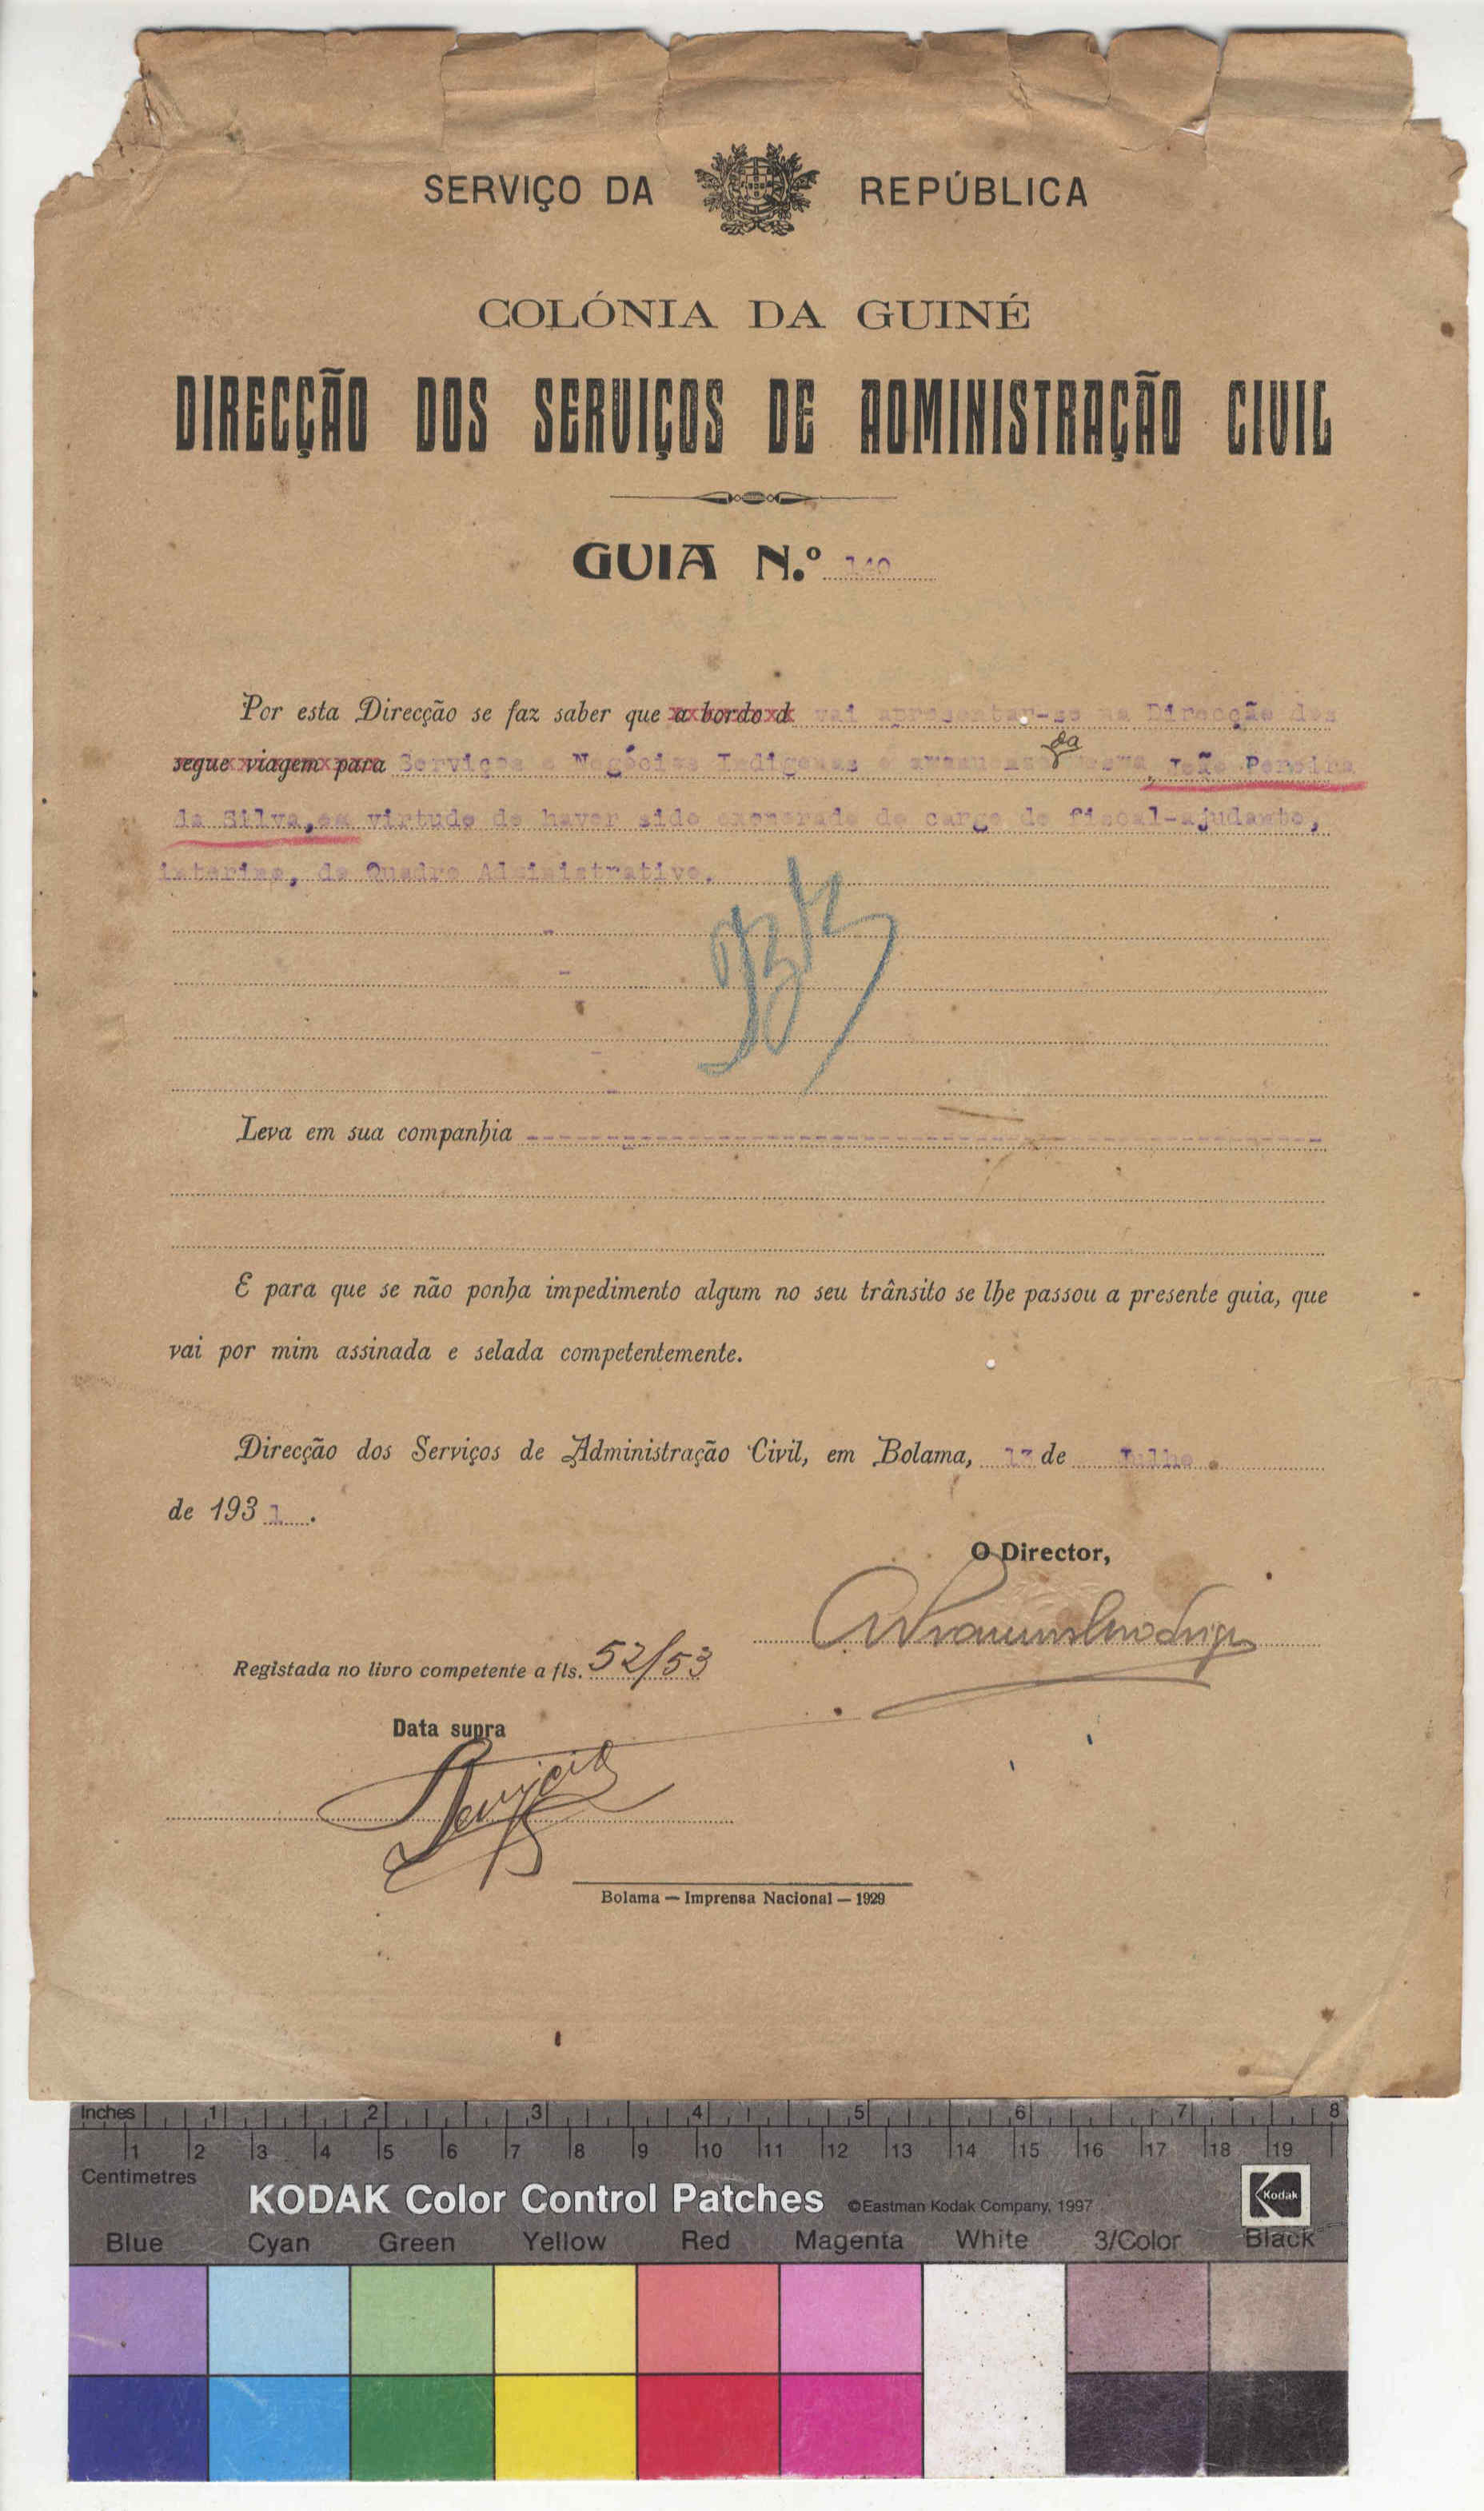 SERVIÇO DA REPÚBLICA
COLÓNIA DA GUINÉ
DIRECÇÃO DOS SERVIÇOS DE ADMINISTRAÇÃO CIVIL
GUIA N.º 140
Por esta Direcção se faz saber que a bordo d vai apresentar-se na Direcção dos
segue viagem para Serviços e Negócios Indigenas da João Pereira
da Silva, em virtude de haver sido exonerado do cargo de fiscal-ajudante,
interino, do Quadro Administrativo.
Leva em sua companhia
E para que se não ponha impedimento algum no seu trânsito se lhe passou a presente guia, que
vai por mim assinada e selada competentemente.
Direcção dos Serviços de Administração Civil, em Bolama, 13 de Julho
de 1931.
O Director,
Registada no livro competente a fls. 52/53
Data supra
Bolama — Imprensa Nacional — 1929
Inches 1 2 3 4 5 6 7 8
1 2 3 4 5 6 7 8 9 10 11 12 13 14 15 16 17 18 19
Centimetres
KODAK Color Control Patches ©Eastman Kodak Company, 1997 Kodak
Blue Cyan Green Yellow Red Magenta White 3/Color Black